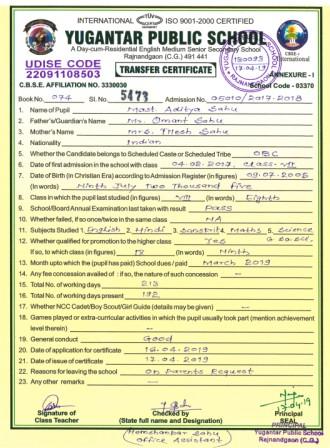 INTERNATIONAL ISO 9001-2000 CERTIFIED
YUGANTAR PUBLIC SCHOOL
A Day-cum-Residential English Medium Senior Secondary School
Rajnandgaon (C.G.) 491 441
UDISE CODE
22091108503
TRANSFER CERTIFICATE
ANNEXURE - I
C.B.S.E. AFFILIATION NO. 3330030
School Code - 03370
Book No. 074 Sl. No. 5473 Admission No. 05010/2017-2018
1. Name of Pupil Mast. Aditya Sahu
2. Father's/Guardian's Name Mr. Omant Sahu
3. Mother's Name Mrs. Sahu
4. Nationality Indian
5. Whether the Candidate belongs to Scheduled Caste or Scheduled Tribe OBC
6. Date of first admission in the school with class 04.08.2017, class-VII
7. Date of Birth (in Christian Era) according to Admission Register (in figures) 09.07.2005
(In words) Ninth July Two Thousand Five
8. Class in which the pupil last studied (in figures) VIII (in words) Eighth
9. School/Board Annual Examination last taken with result Pass
10. Whether failed, if so once/twice in the same class NA
11. Subjects Studied 1. English 2. Hindi 3. Sanskrit 4. Maths 5. Science
12. Whether qualified for promotion to the higher class Yes
If so, to which class (in figures) IX (in words) Ninth
13. Month upto which the (pupil has paid) School dues / paid March 2019
14. Any fee concession availed of : if so, the nature of such concession —
15. Total No. of working days 213
16. Total No. of working days present 192
17. Whether NCC Cadet/Boy Scout/Girl Guide (details may be given) —
18. Games played or extra-curricular activities in which the pupil usually took part (mention achievement
level therein) —
19. General conduct Good
20. Date of application for certificate 16.04.2019
21. Date of issue of certificate 17.04.2019
22. Reasons for leaving the school On Parents Request
23. Any other remarks —
Signature of
Class Teacher
Checked by
(State full name and designation)
Principal
SEAL
PRINCIPAL
Yugantar Public School
Rajnandgaon (C.G.)
Office Assistant